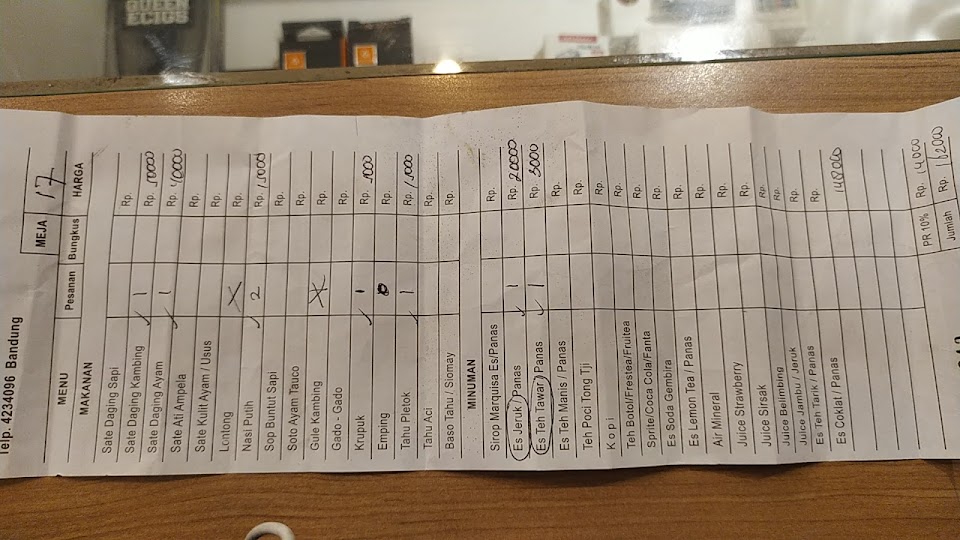 QUEEN
ECIGS
Telp. 4234096 Bandung
MEJA 17
MENU Pesanan Bungkus HARGA
MAKANAN
Sate Daging Sapi Rp.
Sate Daging Kambing ✓ 1 Rp. 50000
Sate Daging Ayam ✓ 1 Rp. 40000
Sate Ati Ampela Rp.
Sate Kulit Ayam / Usus Rp.
Lontong Rp.
Nasi Putih ✓ 2 Rp.
Sop Buntut Sapi Rp.
Soto Ayam Tauco Rp.
Gule Kambing Rp.
Gado - Gado Rp.
Krupuk ✓ 1 Rp.
Emping Rp.
Tahu Pletok ✓ 1 Rp.
Tahu Aci Rp.
Baso Tahu / Siomay Rp.
MINUMAN
Sirop Marquisa Es/Panas Rp.
Es Jeruk / Panas ✓ 1 Rp. 20000
Es Teh Tawar / Panas ✓ 1 Rp. 5000
Es Teh Manis / Panas Rp.
Teh Poci Tong Tji Rp.
Kopi Rp.
Teh Botol/Frestea/Fruitea Rp.
Sprite/Coca Cola/Fanta Rp.
Es Soda Gembira Rp.
Es Lemon Tea / Panas Rp.
Air Mineral Rp.
Juice Strawberry Rp.
Juice Sirsak Rp.
Juice Belimbing Rp.
Juice Jambu / Jeruk Rp.
Es Teh Tarik / Panas Rp.
Es Coklat / Panas
PR 10% Rp. 14.000
Jumlah Rp. 162000